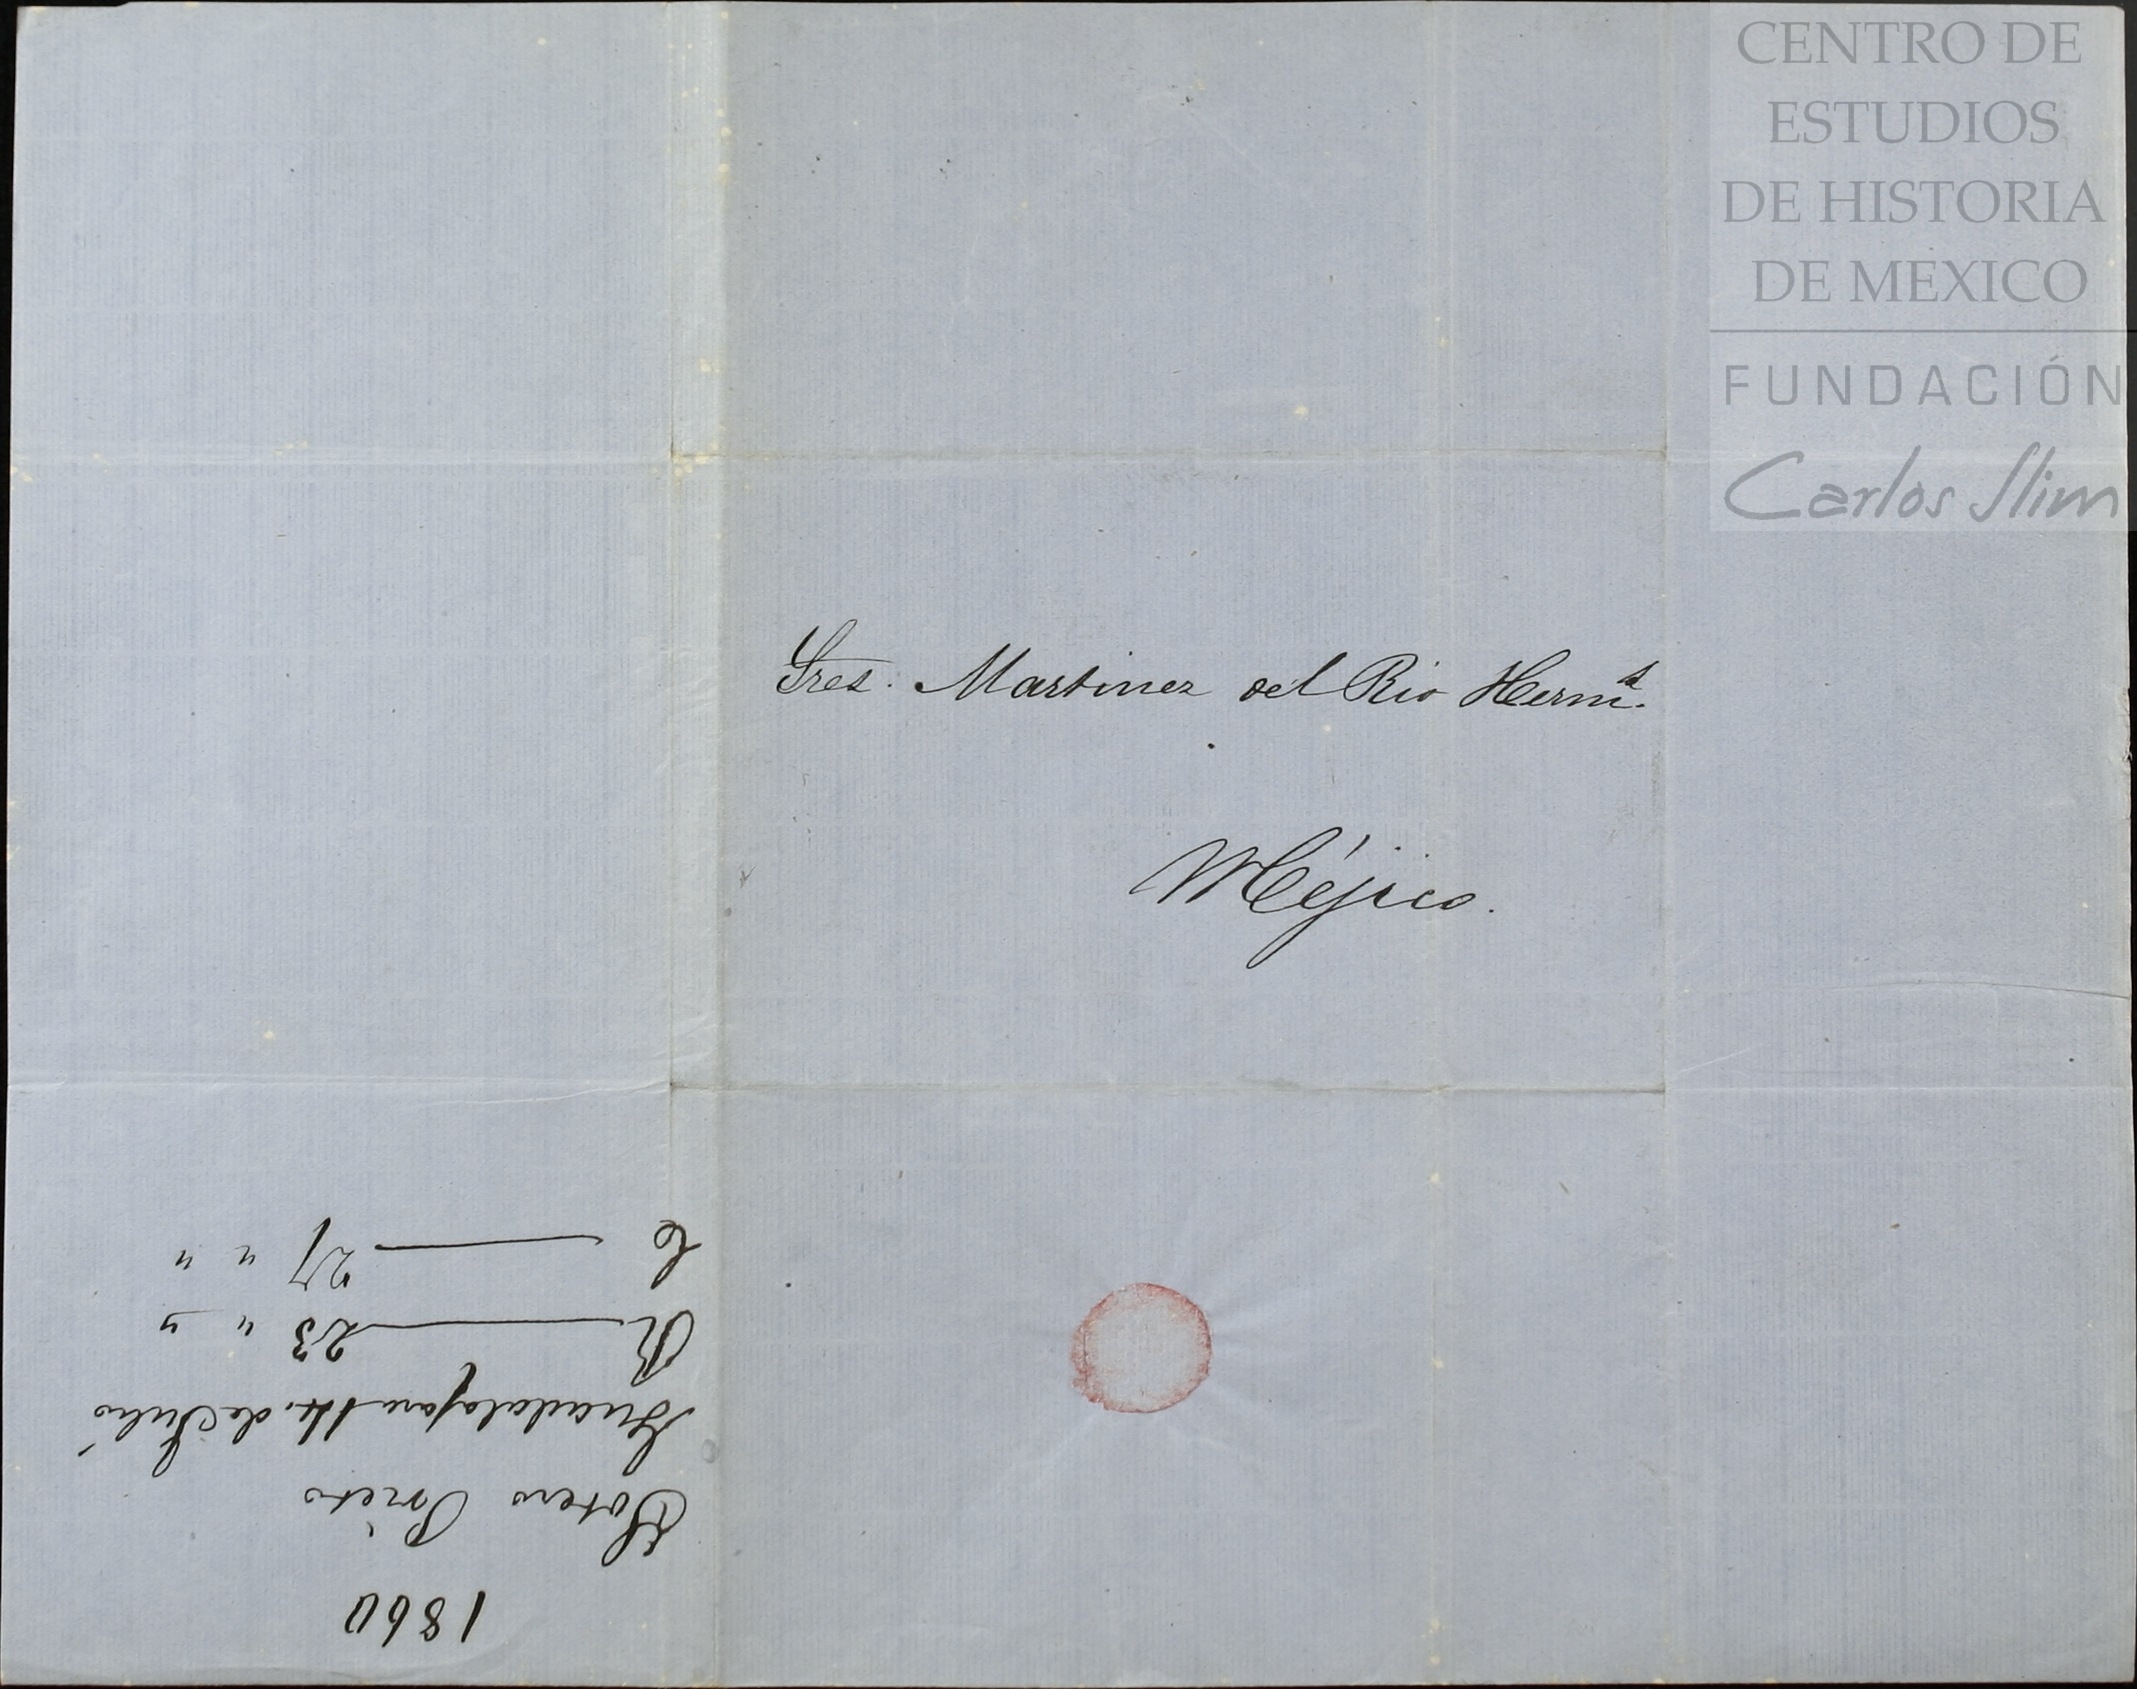 CENTRO DE
ESTUDIOS
DE HISTORIA
DE MEXICO
FUNDACIÓN
Carlos Slim
Sres. Martinez del Rio Herms.
Méjico.
1860
Sotero Prieto
Guadalajara 14. de Julio
R 23 " "
C 27 " "